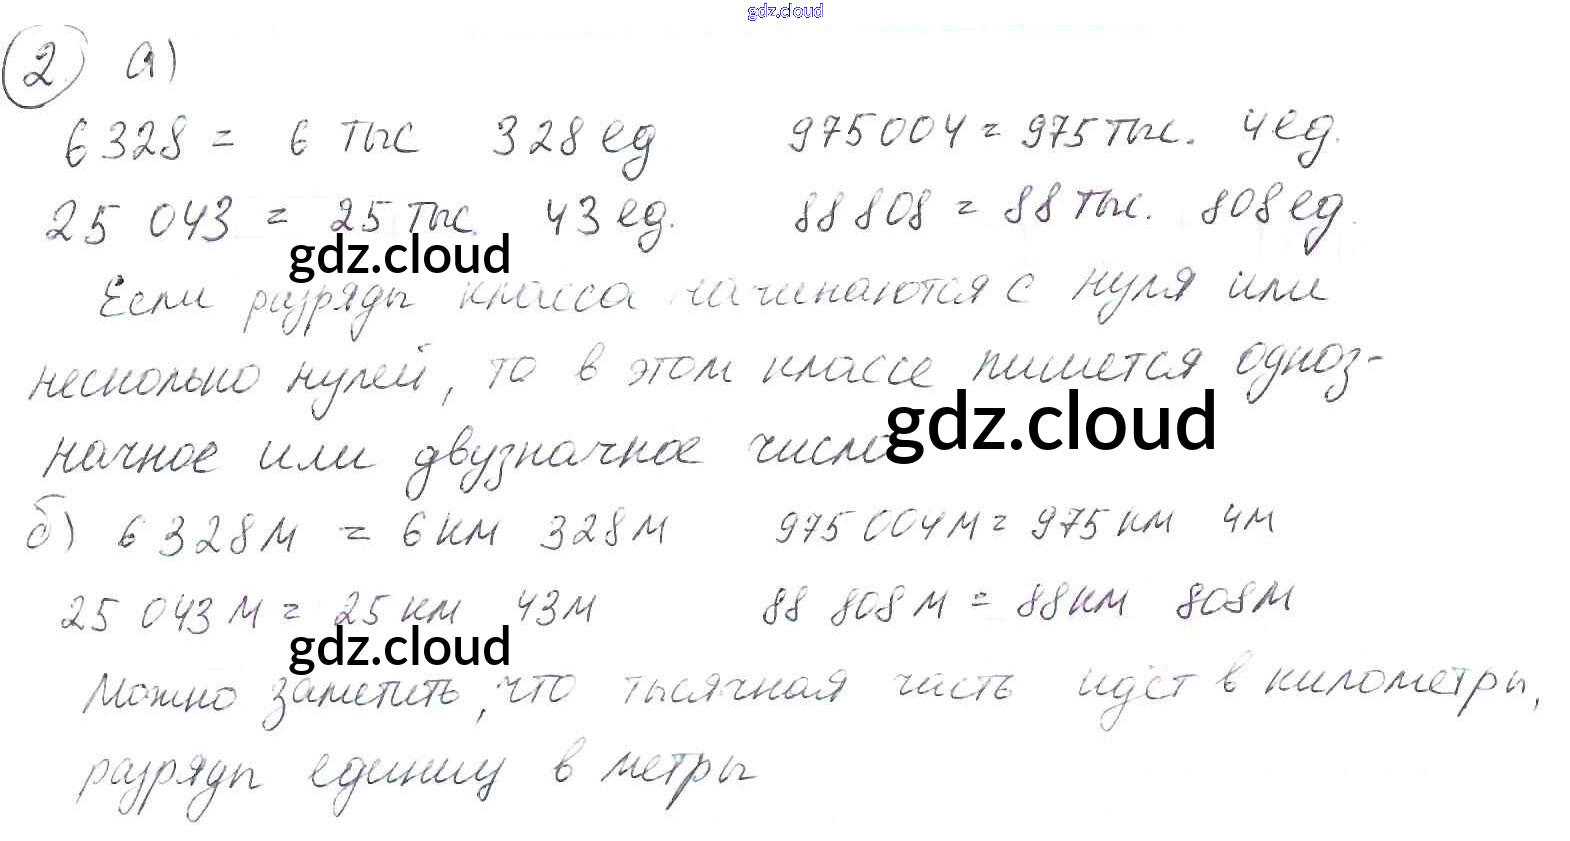 gdz.cloud
2 а)
6 328 = 6 тыс 328 ед 975 004 = 975 тыс. 4 ед.
25 043 = 25 тыс. 43 ед. 88 808 = 88 тыс. 808 ед.
gdz.cloud
Если разряды класса начинаются с нуля или
несколько нулей, то в этом классе пишется одноз-
gdz.cloud
начное или двузначное число
б) 6 328 м = 6 км 328 м 975 004 м = 975 км 4 м
25 043 м = 25 км 43 м 88 808 м = 88 км 808 м
gdz.cloud
Можно заметить, что тысячная часть идёт в километры,
разряды единиц в метры